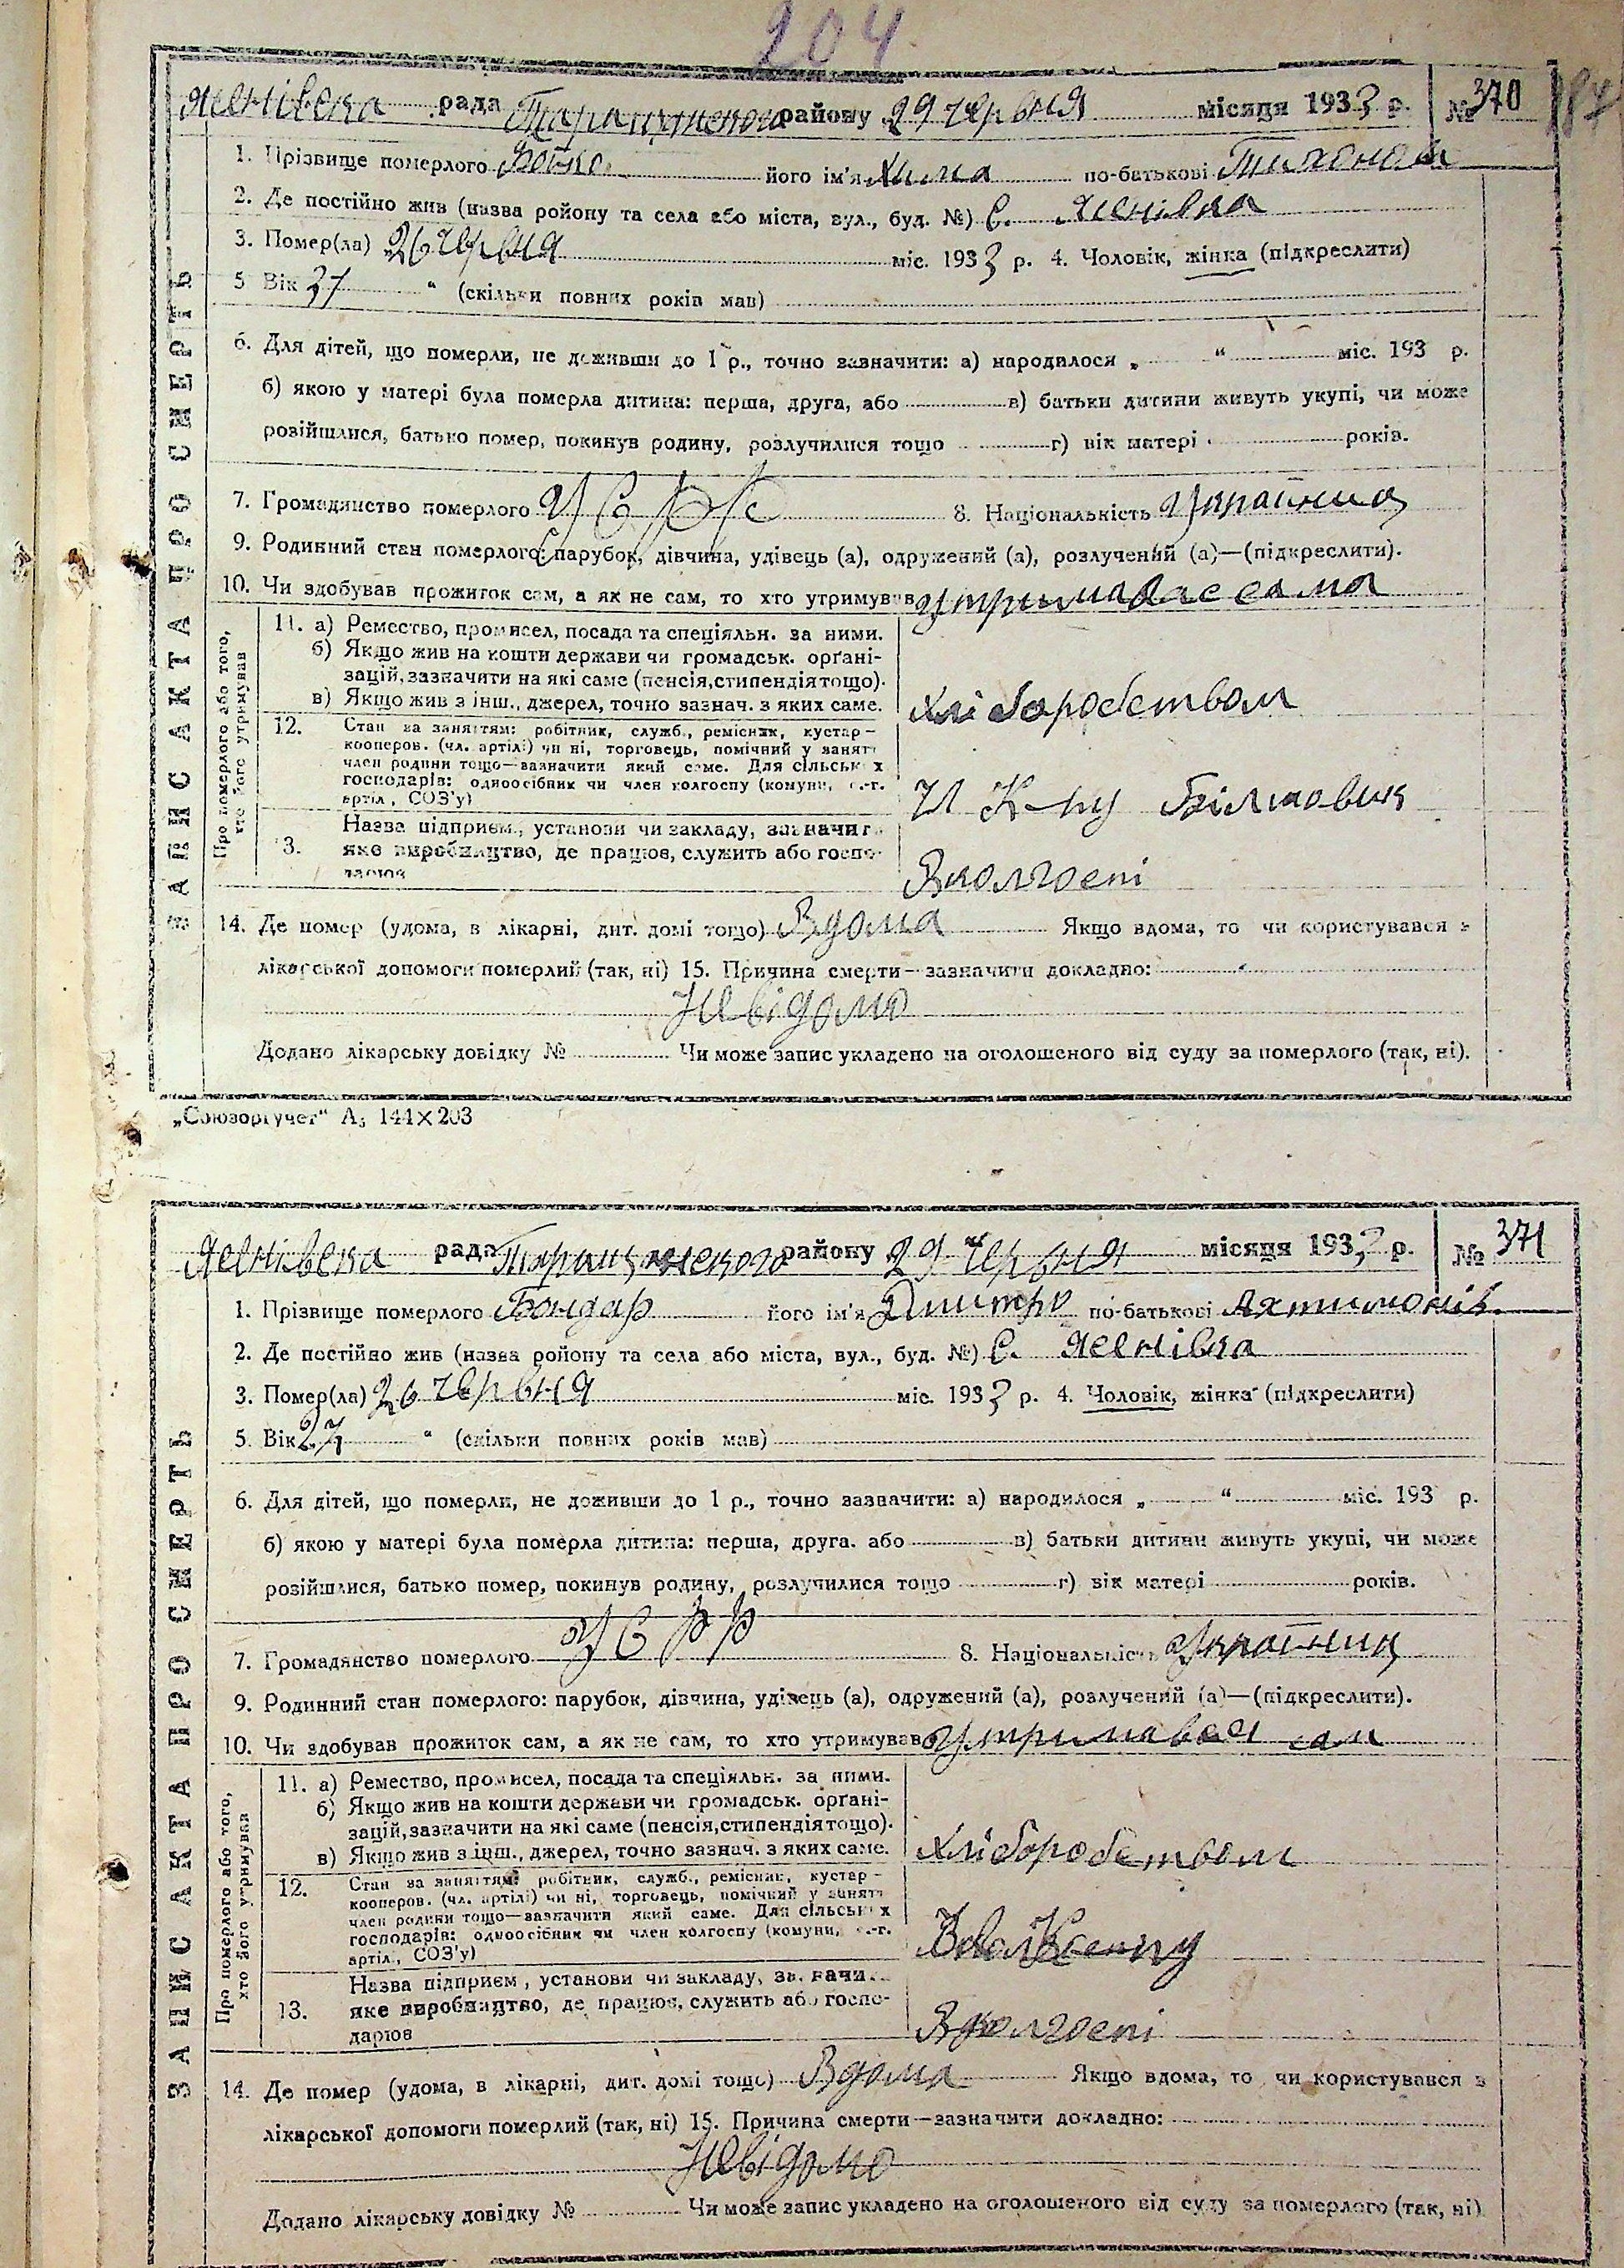 204
Яснівська рада Таращанського району 29 червня місяця 1933 р. № 370
187
1. Прізвище померлого Бойко його ім'я Хима по-батькові Тихонова
2. Де постійно жив (назва ройону та села або міста, вул., буд. №) с. Яснівка
3. Помер(ла) 26 червня міс. 1933 р. 4. Чоловік, жінка (підкреслити)
5 Вік 37 " (скільки повних років мав)
6. Для дітей, що померли, не доживши до 1 р., точно зазначити: а) народилося „ " міс. 193 р.
б) якою у матері була померла дитина: перша, друга, або в) батьки дитини живуть укупі, чи може
розійшлися, батько помер, покинув родину, розлучилися тощо г) вік матері років.
7. Громадянство померлого УСРР 8. Національність Україниц
9. Родинний стан померлого: парубок, дівчина, удівець (а), одружений (а), розлучений (а)—(підкреслити).
10. Чи здобував прожиток сам, а як не сам, то хто утримував утрималас сама
ЗАПИС АКТА ПРО СМЕРТЬ
Про померлого або того, хто його утримував
11. а) Ремество, промисел, посада та спеціяльн. за ними.
б) Якщо жив на кошти держави чи громадськ. орґані-
зацій, зазначити на які саме (пенсія, стипендія тощо).
в) Якщо жив з інш., джерел, точно зазнач. з яких саме.
Хліборобством
12. Стан за заняттям: робітник, служб., ремісник, кустар-
кооперов. (чл. артілі) чи ні, торговець, помічний у занят
член родини тощо—зазначити який саме. Для сільськ х
господарів: одноосібник чи член колгоспу (комуни, с.-г.
артіл., СОЗ'у)
Чл К-пу
3. Назва підприєм., установи чи закладу, зазначит.
яке виробництво, де працює, служить або госпо-
дарює
В колгоспі
14. Де помер (удома, в лікарні, дит. домі тощо) Вдома Якщо вдома, то чи користувався з
лікарської допомоги померлий (так, ні) 15. Причина смерти—зазначити докладно:
Невідомо
Додано лікарську довідку № Чи може запис укладено на оголошеного від суду за померлого (так, ні).
„Союзоргучет" А5 144×203
Яснівська рада Таращанського району 29 червня місяця 1933 р. № 371
1. Прізвище померлого Бондар його ім'я Дмитро по-батькові Ахтимонів
2. Де постійно жив (назва ройону та села або міста, вул., буд. №) с. Яснівка
3. Помер(ла) 26 червня міс. 1933 р. 4. Чоловік, жінка (підкреслити)
5. Вік 27 " (скільки повних років мав)
6. Для дітей, що померли, не доживши до 1 р., точно зазначити: а) народилося „ " міс. 193 р.
б) якою у матері була померла дитина: перша, друга. або в) батьки дитини живуть укупі, чи може
розійшлися, батько помер, покинув родину, розлучилися тощо г) вік матері років.
7. Громадянство померлого УСРР 8. Національність Україниц
9. Родинний стан померлого: парубок, дівчина, удівець (а), одружений (а), розлучений (а)—(підкреслити).
10. Чи здобував прожиток сам, а як не сам, то хто утримував утримався сам
ЗАПИС АКТА ПРО СМЕРТЬ
Про померлого або того, хто його утримував
11. а) Ремество, промисел, посада та спеціяльн. за ними.
б) Якщо жив на кошти держави чи громадськ. орґані-
зацій, зазначити на які саме (пенсія, стипендія тощо).
в) Якщо жив з інш., джерел, точно зазнач. з яких саме.
Хліборобством
12. Стан за заняттям: робітник, служб., ремісник, кустар-
кооперов. (чл. артілі) чи ні, торговець, помічний у занятт
член родини тощо—зазначити який саме. Для сільськ х
господарів: одноосібник чи член колгоспу (комуни, с.-г.
артіл., СОЗ'у)
13. Назва підприєм., установи чи закладу, зазначи
яке виробництво, де працює, служить або госпо-
дарює
В колгоспі
14. Де помер (удома, в лікарні, дит. домі тощо) Вдома Якщо вдома, то чи користувався з
лікарської допомоги померлий (так, ні) 15. Причина смерти—зазначити докладно:
Невідомо
Додано лікарську довідку № Чи може запис укладено на оголошеного від суду за померлого (так, ні)